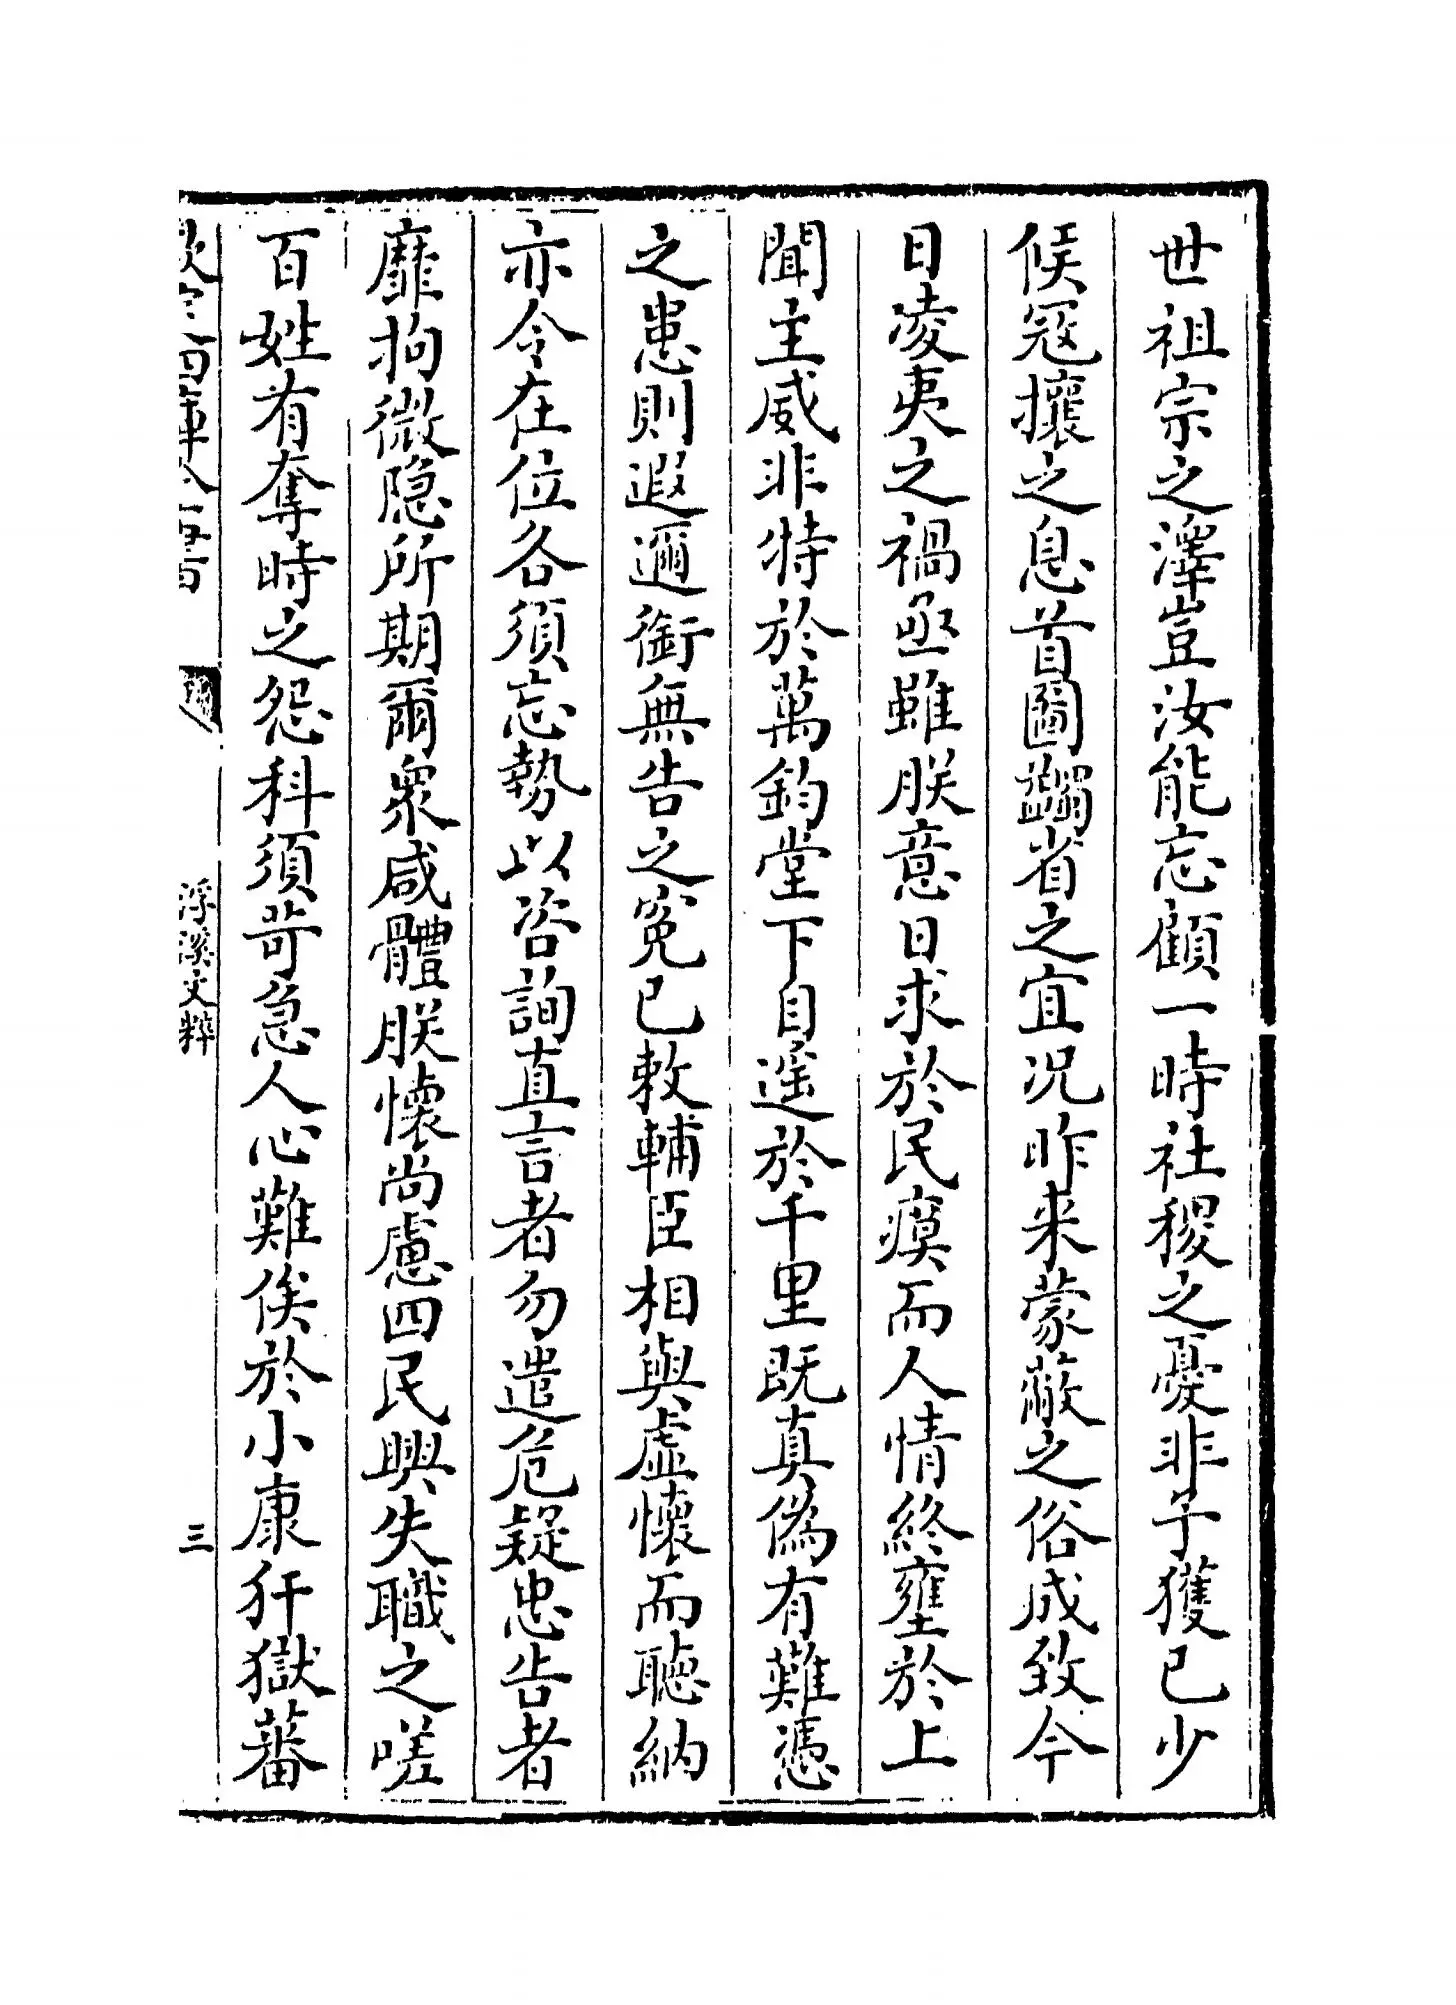 世祖宗之澤豈汝能忘顧一時社稷之憂非予獲已少
候冦攘之息首圖蠲省之宜况昨来蒙蔽之俗成致今
日凌夷之禍亟雖朕意日求於民瘼而人情終壅於上
聞主威非特於萬鈞堂下自遥於千里既真偽有難憑
之患則遐邇銜無告之寃已敕輔臣相與虚懷而聽納
亦令在位各須忘勢以咨詢直言者勿遣危疑忠告者
靡拘微隐所期爾衆咸體朕懷尚慮四民興失職之嗟
百姓有奪時之怨科須苛急人心難俟於小康犴獄蕃
欽定四庫全書
浮溪文粹
三